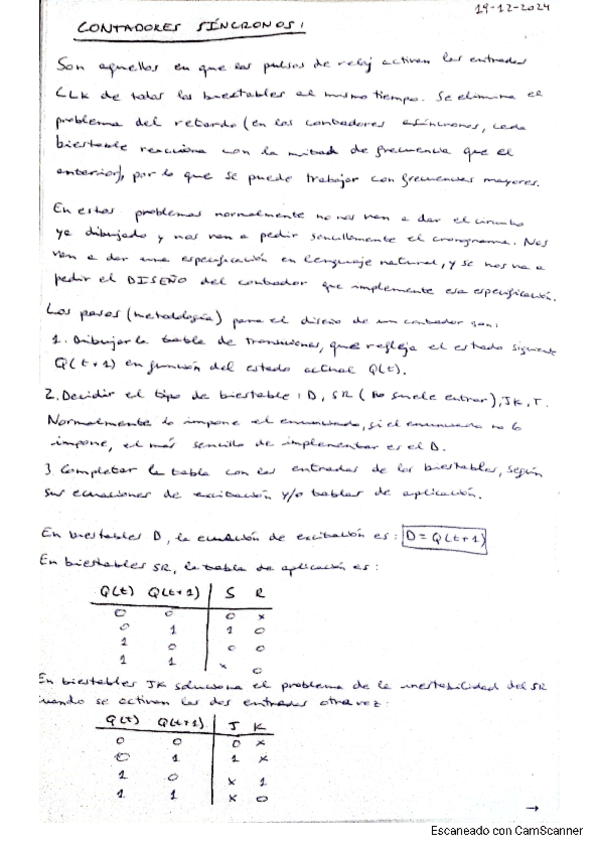 19-12-2024
CONTADORES SÍNCRONOS:
Son aquellos en que los pulsos de reloj activan las entradas
CLK de todos los biestables al mismo tiempo. Se elimina el
problema del retardo (en los contadores asíncronos, cada
biestable reacciona con la mitad de frecuencia que el
anterior), por lo que se puede trabajar con frecuencias mayores.
En estos problemas normalmente no nos van a dar el circuito
ya dibujado y nos van a pedir sencillamente el cronograma. Nos
van a dar una especificación en lenguaje natural, y se nos va a
pedir el DISEÑO del contador que implemente esa especificación.
Los pasos (metodología) para el diseño de un contador son:
1. Dibujar la tabla de transiciones, que refleja el estado siguiente
Q(t+1) en función del estado actual Q(t).
2. Decidir el tipo de biestable: D, SR (no suele entrar), JK, T.
Normalmente lo impone el enunciado, si el enunciado no lo
impone, el más sencillo de implementar es el D.
3 Completar la tabla con las entradas de los biestables, según
sus ecuaciones de excitación y/o tablas de aplicación.
En biestables D, la ecuación de excitación es: D = Q(t+1)
En biestables SR, la tabla de aplicación es:
Q(t) Q(t+1) S R
0 0 0 x
0 1 1 0
1 0 0 0
1 1 x 0
En biestables JK soluciona el problema de la inestabilidad del SR
cuando se activan las dos entradas otra vez:
Q(t) Q(t+1) J K
0 0 0 x
0 1 1 x
1 0 x 1
1 1 x 0
→
Escaneado con CamScanner